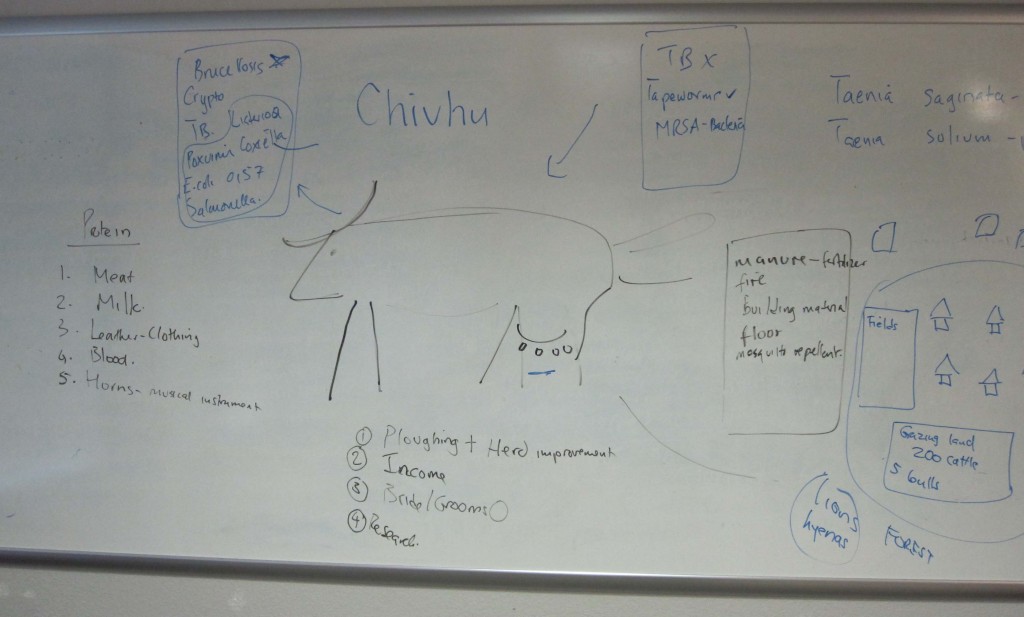 Brucellosis
Crypto
TB.
Coxiella
E.coli 0157
Salmonella.
Chivhu
TB x
Tapeworms ✓
MRSA-Bacteria
Taenia Saginata-
Taenia Solium -
Protein
1. Meat
2. Milk.
3. Leather-Clothing
4. Blood.
5. Horns- musical instrument
manure-fertilizer
fire
building material
floor
mosquito repellent.
Fields
Gazing land
200 cattle
5 bulls
① Ploughing + Herd improvement
② Income
③ Bride/Grooms
④ Research.
lions
hyenas
FOREST